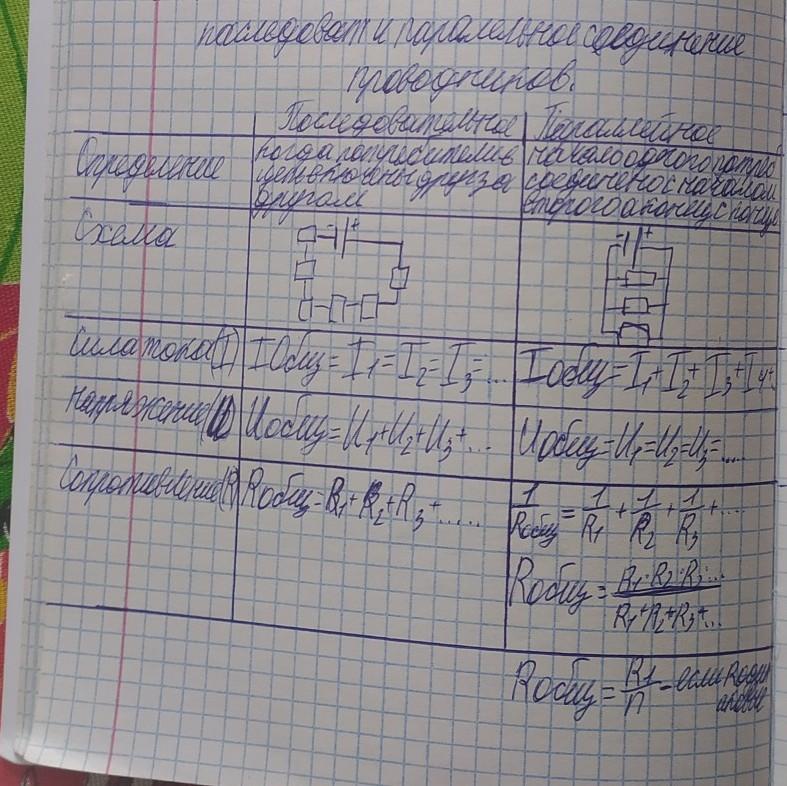 последоват и паралельное соединение
проводников.
Последовательное Параллейное
Определение
когда потребители в
цепь включены друг за
другом
начало одного потреб
соединено с началом
второго а конец с конце
Схема
- +
- +
Сила тока (I) I Общ = I1 = I2 = I3 = ... Iобщ = I1 + I2 + I3 + I4 +.
Напряжение (U) Uобщ = U1 + U2 + U3 + ... Uобщ = U1 = U2 = U3 = ....
Сопротивление (R) Rобщ = R1 + R2 + R3 + ..... 1/Rобщ = 1/R1 + 1/R2 + 1/R3 + ...
Rобщ = R1·R2·R3·... / R1+R2+R3+...
Rобщ = R1/n - если R один
аковые